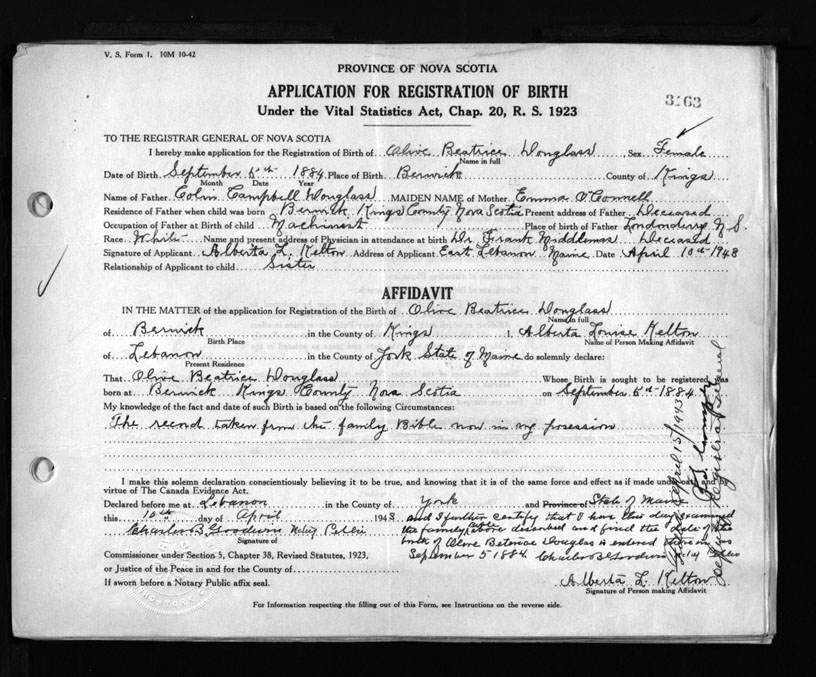 V. S. Form 1. 10M 10-42
PROVINCE OF NOVA SCOTIA
APPLICATION FOR REGISTRATION OF BIRTH
Under the Vital Statistics Act, Chap. 20, R. S. 1923
3163
TO THE REGISTRAR GENERAL OF NOVA SCOTIA
I hereby make application for the Registration of Birth of Olive Beatrice Douglass, Sex Female
Name in full
Date of Birth September 5th 1884 Place of Birth Berwick County of Kings
Month Date Year
Name of Father Colin Campbell Douglass MAIDEN NAME of Mother Emma O'Connell
Residence of Father when child was born Berwick Kings County Nova Scotia Present address of Father Deceased
Occupation of Father at Birth of child Machinist Place of birth of Father Londonderry N.S.
Race White Name and present address of Physician in attendance at birth Dr. Frank Middlemas Deceased
Signature of Applicant Alberta L. Kelton Address of Applicant East Lebanon Maine Date April 10th 1943
Relationship of Applicant to child Sister
AFFIDAVIT
IN THE MATTER of the application for Registration of the Birth of Olive Beatrice Douglass
Name in full
of Berwick in the County of Kings I, Alberta Louise Kelton
Birth Place Name of Person Making Affidavit
of Lebanon in the County of York State of Maine do solemnly declare:
Present Residence
That Olive Beatrice Douglass Whose Birth is sought to be registered was
born at Berwick Kings County Nova Scotia on September 5th 1884
My knowledge of the fact and date of such Birth is based on the following Circumstances:
The record taken from the family Bible now in my posession
I make this solemn declaration conscientiously believing it to be true, and knowing that it is of the same force and effect as if made under oath and by
virtue of The Canada Evidence Act.
Declared before me at Lebanon in the County of York and Province of State of Maine
this 10th day of April 1943 and I further certify that I have this day examined
Charles B. Goodwin Notary Public the family Bible above described and find the date of the
Signature of birth of Olive Beterice Douglas is entered therein as
Commissioner under Section 5, Chapter 38, Revised Statutes, 1923, September 5 1884. Charles B Goodwin Notary Public
or Justice of the Peace in and for the County of
If sworn before a Notary Public affix seal. Alberta L. Kelton
Signature of Person making Affidavit
For Information respecting the filling out of this Form, see Instructions on the reverse side.
April 15/1943
Deputy Registrar General